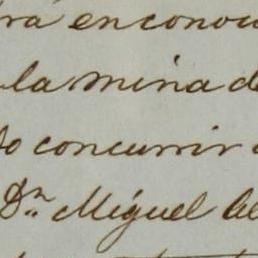 rá en conoci
la mina de
do concurrir
Dn. Miguel